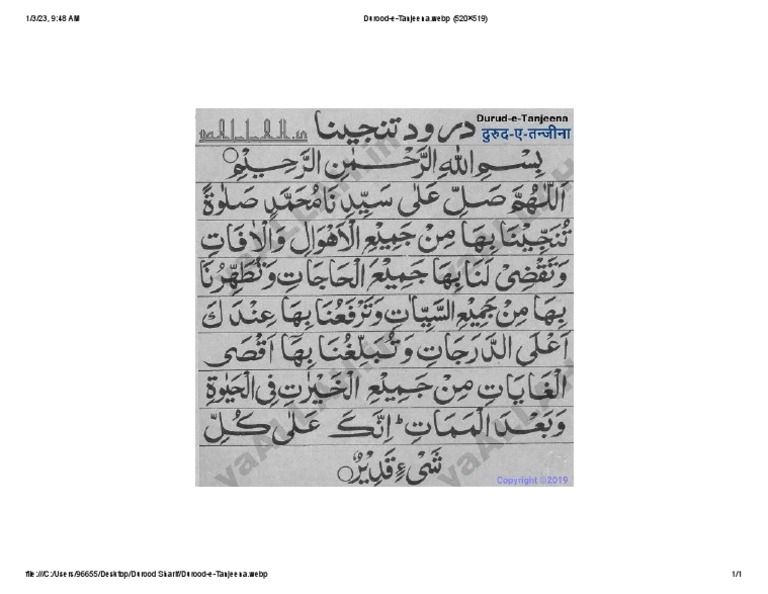 1/3/23, 9:48 AM
Durood-e-Tanjeena.webp (520×519)
درود تنجینا
Durud-e-Tanjeena
दुरुद-ए-तन्जीना
بِسْمِ اللّٰهِ الرَّحْمٰنِ الرَّحِيْمِ
اَللّٰهُمَّ صَلِّ عَلٰى سَيِّدِنَا مُحَمَّدٍ صَلٰوةً
تُنَجِّيْنَا بِهَا مِنْ جَمِيْعِ الْاَهْوَالِ وَالْاٰفَاتِ
وَتَقْضِىْ لَنَا بِهَا جَمِيْعَ الْحَاجَاتِ وَتُطَهِّرُنَا
بِهَا مِنْ جَمِيْعِ السَّيِّاٰتِ وَتَرْفَعُنَا بِهَا عِنْدَكَ
اَعْلَى الدَّرَجَاتِ وَتُبَلِّغُنَا بِهَا اَقْصَى
الْغَايَاتِ مِنْ جَمِيْعِ الْخَيْرٰتِ فِى الْحَيٰوةِ
وَبَعْدَ الْمَمَاتِ ؕ اِنَّكَ عَلٰى كُلِّ
شَىْءٍ قَدِيْرٌ
Copyright ©2019
file:///C:/Users/96655/Desktop/Durood Sharif/Durood-e-Tanjeena.webp
1/1